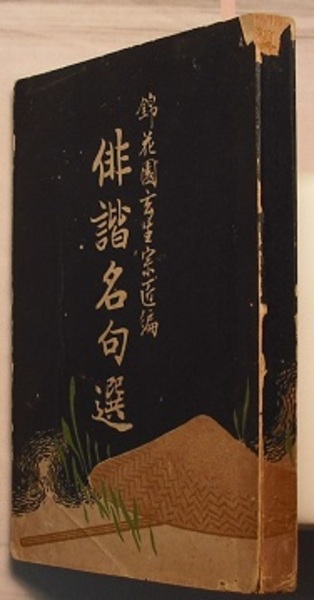 錦花園玄生宗匠編
俳諧名句選